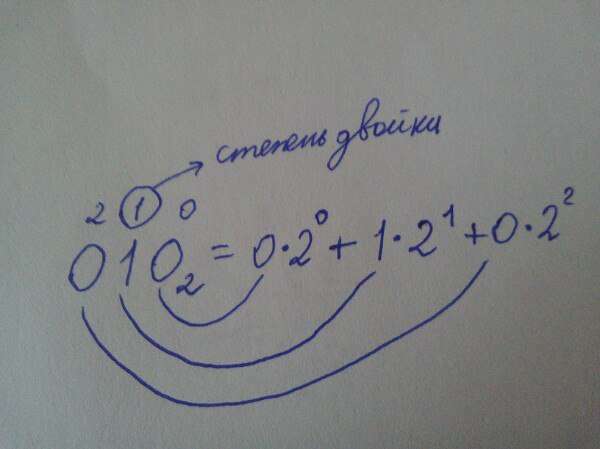 степень двойки
2 1 0
010₂ = 0·2⁰ + 1·2¹ + 0·2²